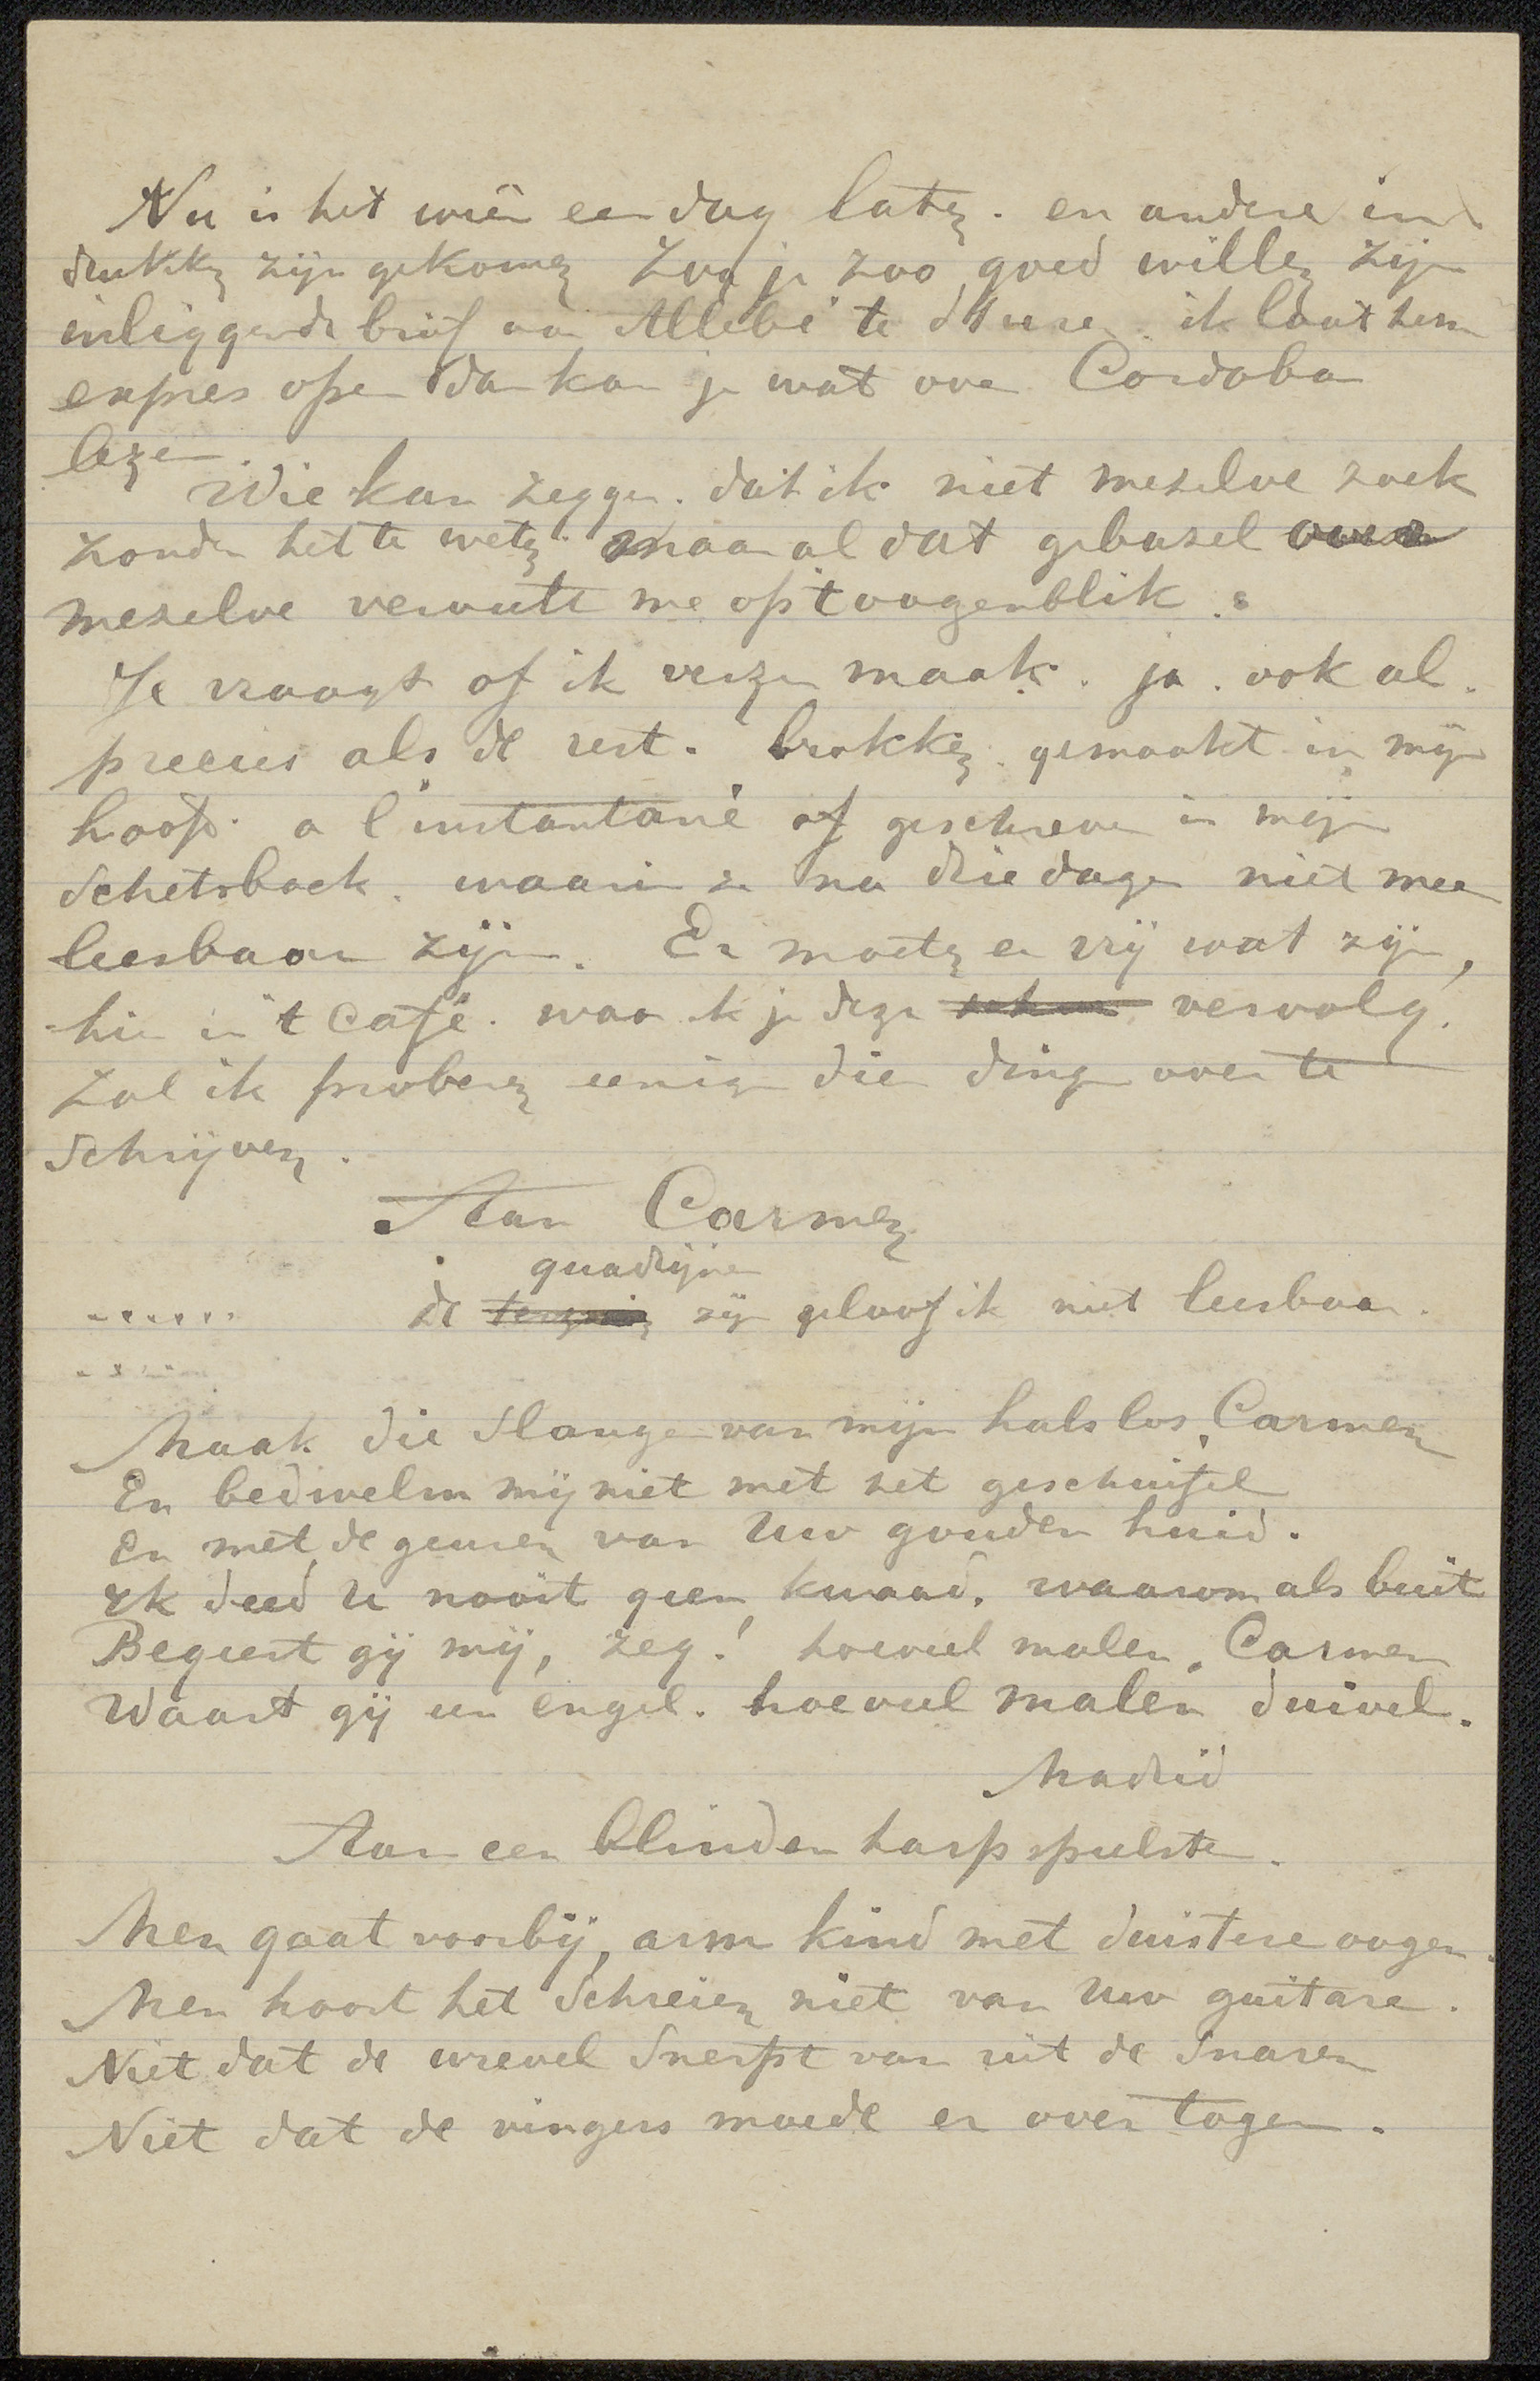 Nu is het weêr een dag later. en andere in
drukken zijn gekomen Zou je zoo goed willen zijn
inliggende brief aan Allebé te sturen. ik laat hem
expres open dan kan je wat over Cordoba
lezen.
Wie kan zeggen. dat ik niet mezelve zoek
zonder het te weten. maar al dat gebazel over
mezelve verveelt me op 't oogenblik.
Je vraagt of ik verzen maak. ja. ook al.
precies als de rest. brokken. gemaakt in mijn
hoofd. a l'instantané of geschreven in mijn
Schetsboek. waarin ze na drie dagen niet meer
leesbaar zijn. Er moeten er vrij wat zijn,
hier in 't Café. waar ik je deze vervolg.
zal ik proberen eenige dier dingen over te
Schrijven.
Aan Carmen
quadrijnen
......
de terzinen zijn geloof ik niet leesbaar.
Maak die Slangen van mijn hals los, Carmen
En bedwelm mij niet met het geschuifel
en met de geuren van Uw gouden huid.
Ik deed U nooit geen kwaad. waarom als buit
Begeert gij mij, zeg! hoeveel malen, Carmen
Waart gij een engel. hoeveel malen duivel.
Madrid
Aan een blinden harpspeelster.
Men gaat voorbij, arm kind met duistere oogen.
Men hoort het Schreien niet van Uw guitare.
Niet dat de wrevel Snerpt van uit de Snaren
Niet dat de vingers moede er over togen.